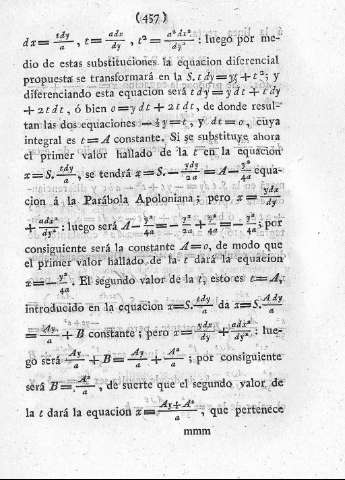 (457)
dx = tdy/a, t = adx/dy, t² = a²dx²/dy² : luego por me-
dio de estas substituciones la equacion diferencial
propuesta se transformará en la S.tdy = yt + t²; y
diferenciando esta equacion será tdy = ydt + tdy
+ 2tdt, ó bien 0 = ydt + 2tdt, de donde resul-
tan las dos equaciones -½y = t, y dt = 0, cuya
integral es t = A constante. Si se substituye ahora
el primer valor hallado de la t en la equacion
x = S.tdy/a, se tendrá x = S.-ydy/2a = A - y²/4a equa-
cion á la Parábola Apoloniana; pero x = ydx/dy
+ adx²/dy² : luego será A - y²/4a = - y²/2a + y²/4a = - y²/4a; por
consiguiente será la constante A = 0, de modo que
el primer valor hallado de la t dará la equacion
x = - y²/4a. El segundo valor de la t, esto es t = A,
introducido en la equacion x = S.tdy/a da x = S.Ady/a
= Ay/a + B constante; pero x = ydx/dy + adx²/dy² : lue-
go será Ay/a + B = Ay/a + A²/a; por consiguiente
será B = A²/a, de suerte que el segundo valor de
la t dará la equacion x = Ay+A²/a, que pertenece
mmm